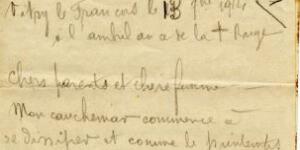 Vitry le François le 13 9bre 1914
à l'ambulance de la + Rouge
chers parents et chère femme
Mon cauchemar commence à
se dissiper et comme le printemps